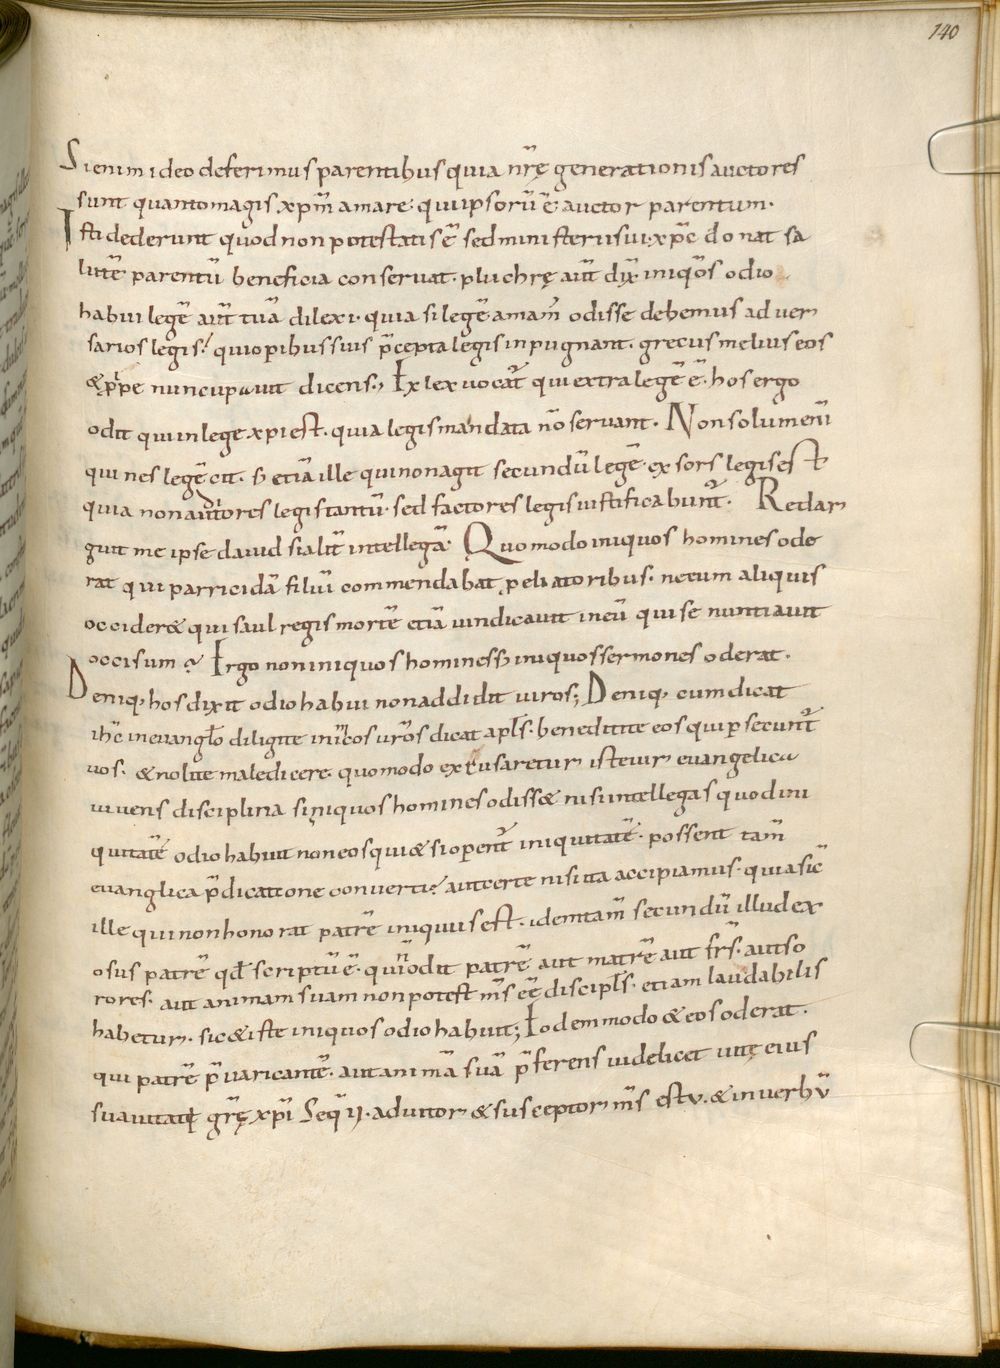 140
Si enim ideo deferimus parentibus quia nr̄ę generationis auctores
sunt quanto magis xp̄m amare· qui ipsorū ē auctor parentum·
Isti dederunt quod non potestatis ē sed ministerii sui· xp̄c donat sa
lutē parentū beneficia conservat· pluchrę aūt dix̄ iniq̄os odio
habui legē aūt tuā dilexi· quia si legē amam̄ odisse debemus adver
sarios legis? qui operibus suis p̄cepta legis inpugnant· grecus melius eos
& p̄pe nuncupavit dicens., Ex lex vocat̄ qui extra legē ē· hos ergo
odit qui in lege xp̄i est· quia legis mandata nō servant· Non solum enī
qui nes legē cit· ƀ etiā ille qui non agit secundū legē exsors legis est
quia non auditores legis tantū· sed factores legis iustificabunt̄· Redar
guit me ipse david si alit̄ intellegā· Quomodo iniquos homines ode
rat qui parricidā filiū commendabat p̱eliatoribus· ne eum aliquis
occider& qui saul regis mortē etiā vindicavit in eū qui se nuntiavit
occisum? Ergo non iniquos homines ƀ iniquos sermones oderat·
Deniq, hos dixit odio habui non addidit viros; Deniq, cum dicat
ih̄c in evangl̄o diligite inīcos vr̄os dicat apl̄s· benedicite eos qui ꝑsecunt̄
vos· & nolite maledicere· quomodo excusaretur iste vir evangelica
vivens disciplina si iniquos homines odiss& nisi intellegas quod ini
quitatē odio habuit non eos qui & si operent̄ iniquitatē· possent tam̄
evanglica p̄dicatione converti? aut certe nisi ita accipiamus· quia sic̄
ille qui non honorat patrē iniquus est· idem tam̄ secundū illud ex
osus patrē qd̄ scriptū ē· qui n̄ odit patrē aut matrē aut fr̄s· aut so
rores· aut animam suam non potest m̄s eē discipl̄s· etiam laudabilis
habetur· sic & iste iniquos odio habuit; Eodem modo & eos oderat·
qui patrē p̄varicantē· aut animā suā p̄ferens videlicet vitę eius
suavitati gr̄ę xp̄i Seq̄ ij· adiutor & susceptor m̄s es tv· & in verbū